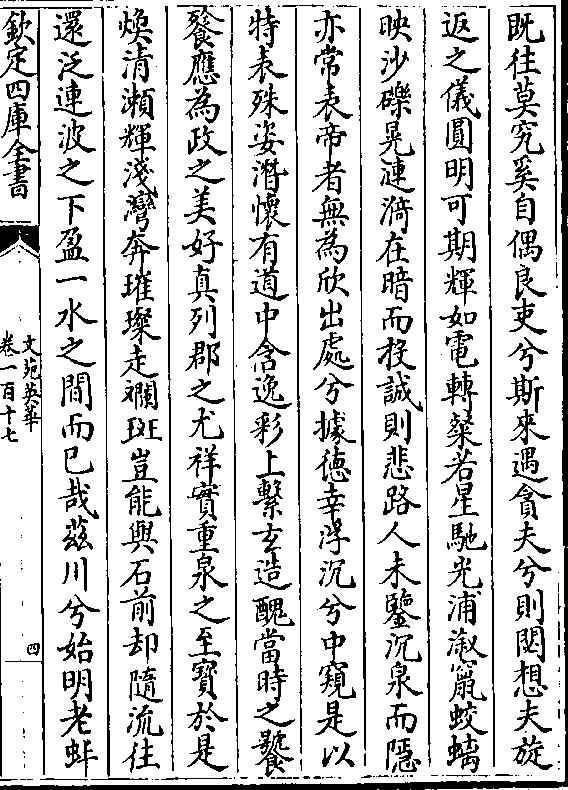 既往莫究奚自偶良吏兮斯來遇貪夫兮則閟想夫旋
返之儀圓明可期輝如電轉粲若星馳光浦溆竄蛟螭
映沙礫晃漣漪在暗而投誠則悲路人未鑒沉泉而隱
亦常表帝者無為欣出處兮據德幸浮沉兮中窺是以
特表殊姿潛懷有道中含逸彩上繫玄造醜當時之饕
餮應為政之美好真列郡之尤祥實重泉之至寳於是
煥清瀬輝淺灣奔璀璨走斕斑豈能與石前却隨流往
還泛連波之下盈一水之間而已哉兹川兮始明老蚌
欽定四庫全書
文苑英華
卷一百十七
四